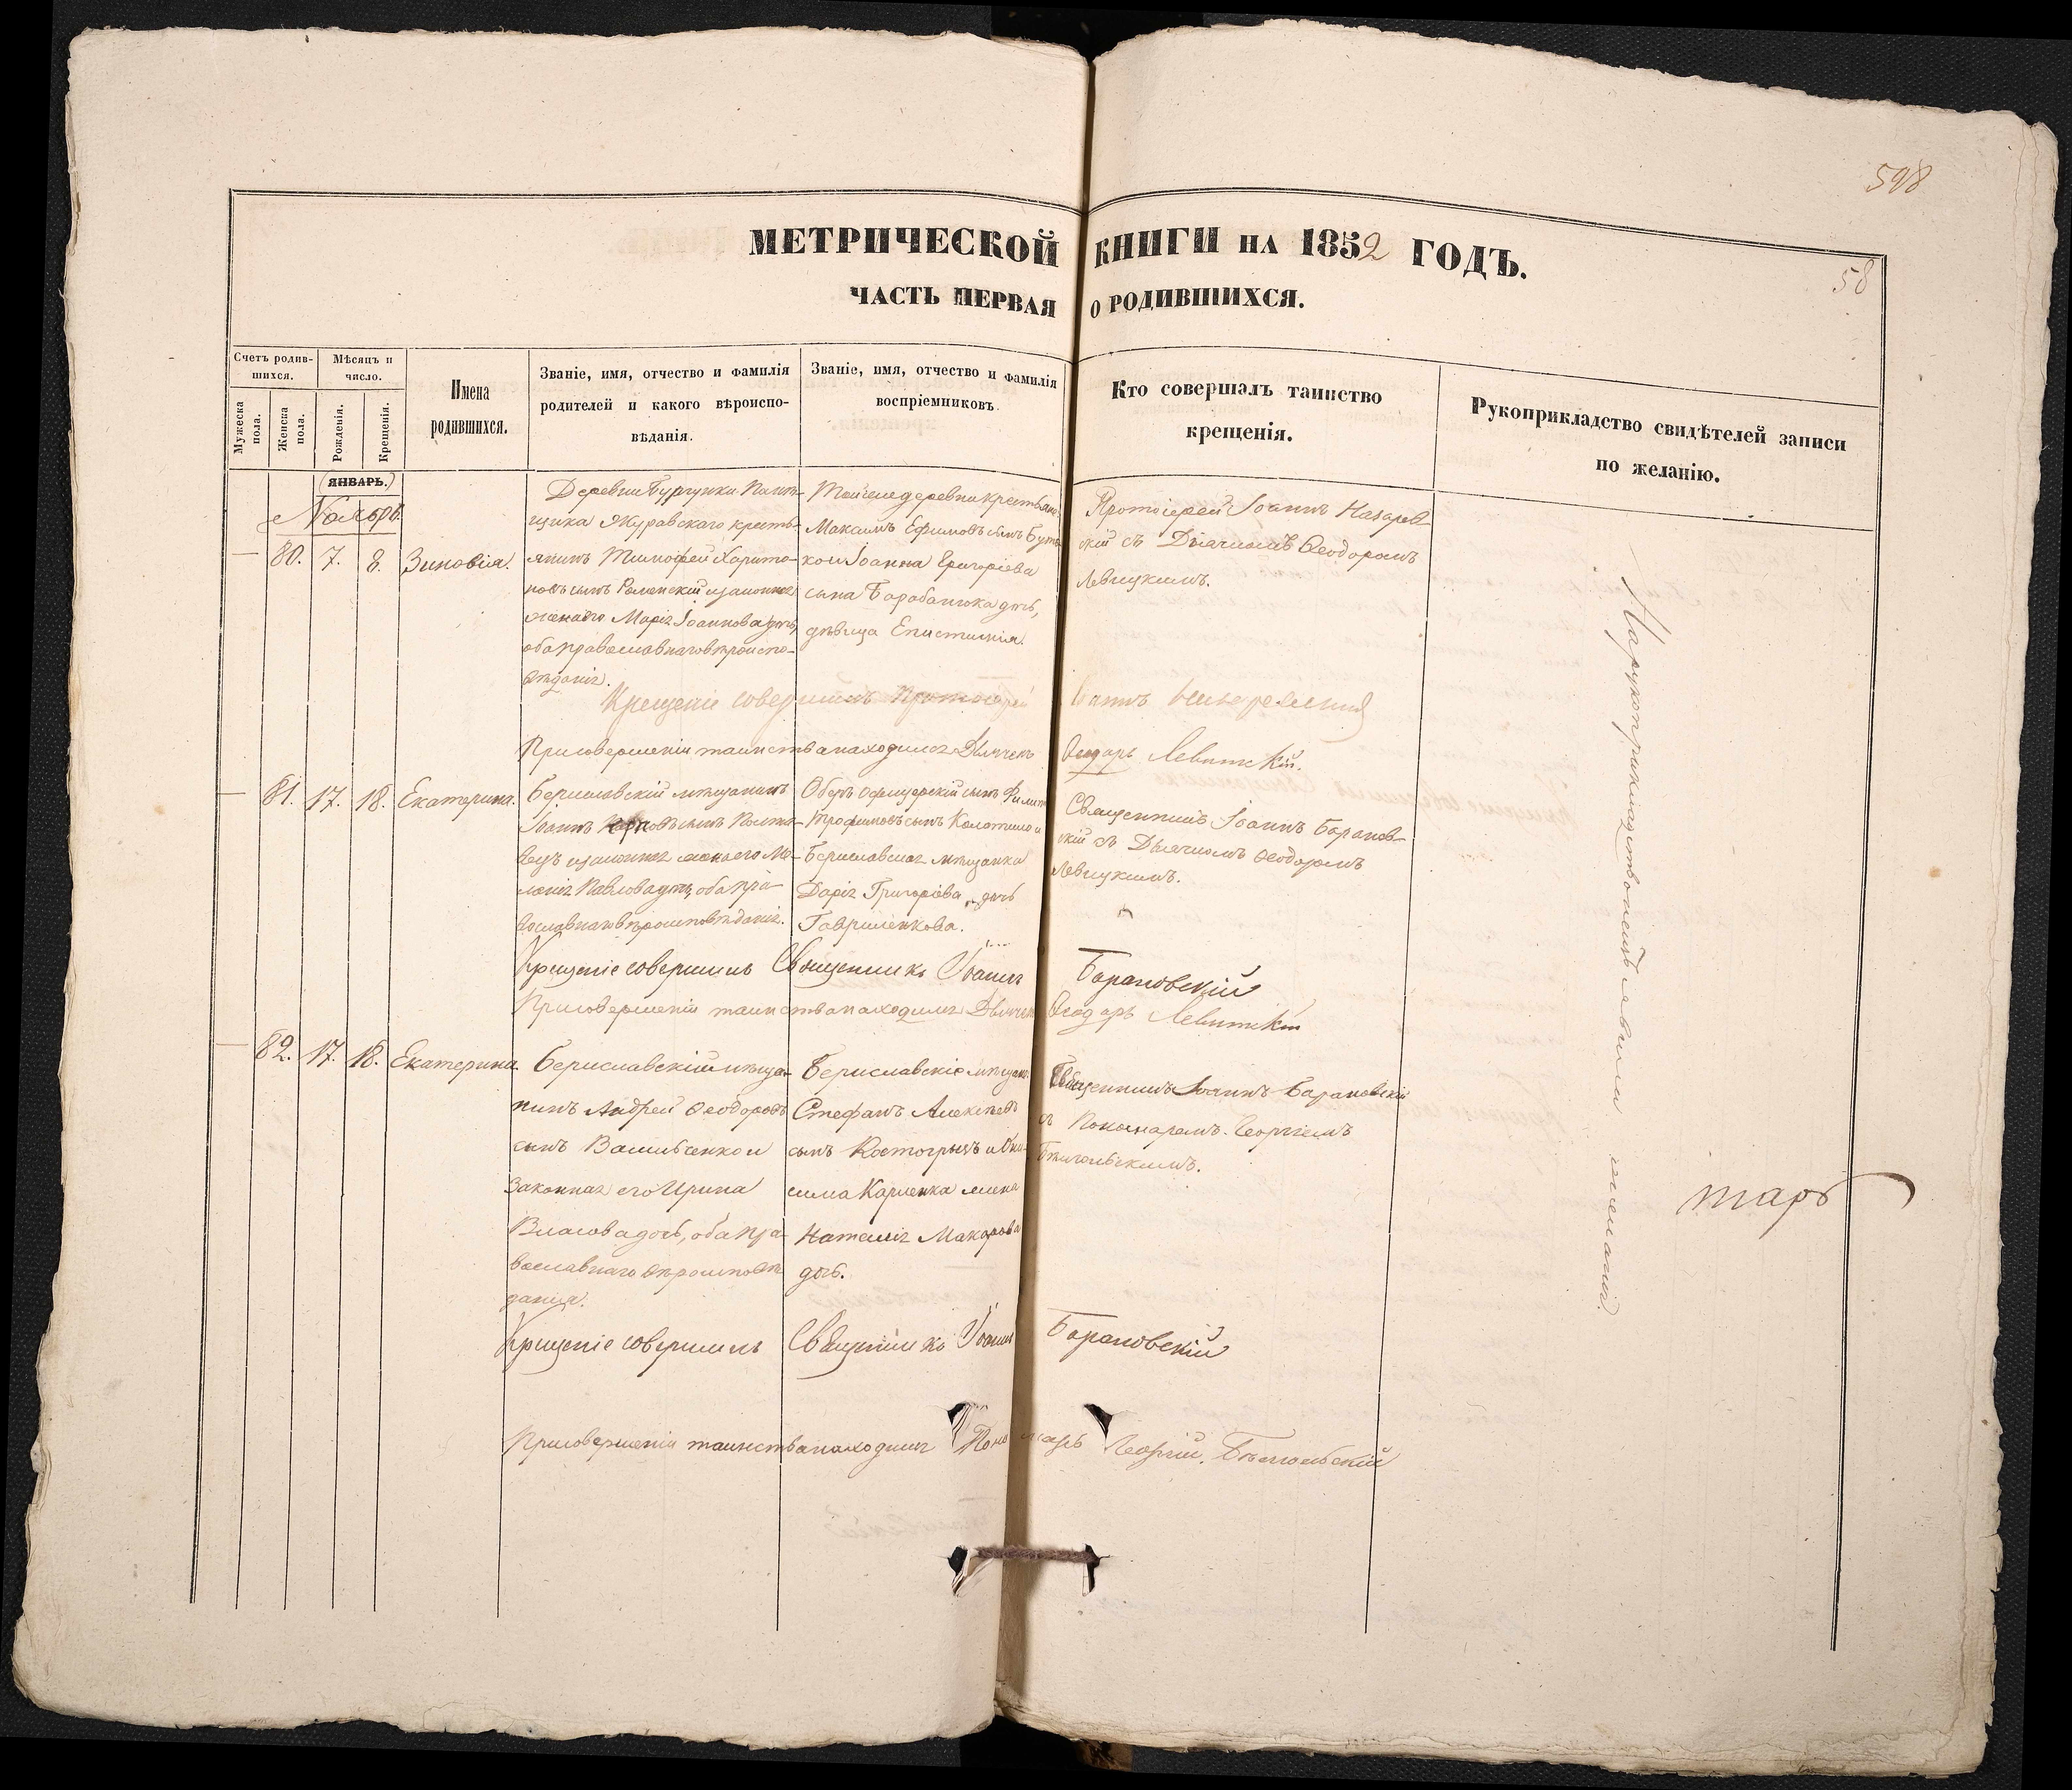 598
МЕТРИЧЕСКОЙ КНИГИ НА 1852 ГОДЪ.
58
ЧАСТЬ ПЕРВАЯ О РОДИВШИХСЯ.
Счетъ родив-
шихся.
Мужеска пола.
Женска пола.
Мѣсяцъ и
число.
Рожденія.
Крещенія.
Имена
родившихся.
Званіе, имя, отчество и фамилія
родителей и какого вѣроиспо-
вѣданія.
Званіе, имя, отчество и фамилія
воспріемниковъ.
Кто совершалъ таинство
крещенія.
Рукоприкладство свидѣтелей записи
по желанію.
(ЯНВАРЬ.)
Ноябрь.
— 80. 7. 8. Зиновія.
Деревни Бургунки Помѣ-
щика Журавскаго кресть-
янинъ Тимофей Харито-
новъ сынъ Роменскій и законная
жена его Марія Іоаннова дочь,
оба православнаго вѣроиспо-
вѣданія.
Той же деревни крестьяне
Максимъ Ефимовъ сынъ
ко и Іоанна Григоріева
сына Барабанюка дочь,
дѣвица Епистимія.
Протоіерей Іоаннъ Назарев-
скій съ Дьячкомъ Ѳеодоромъ
Левицкимъ.
Крещеніе совершилъ Протоіерей Іоаннъ
При совершеніи таинства находился Дьячекъ Ѳеодоръ Левитскій.
— 81. 17. 18. Екатерина.
Бериславскій мѣщанинъ
Іоаннъ Карповъ сынъ Полта-
вецъ и законная жена его Ме-
ланія Павлова дочь, оба пра-
вославнаго вѣроисповѣданія.
Оберъ Офицерскій сынъ Филипъ
Трофимовъ сынъ и
Бериславская мѣщанка
Дарія Григоріева дочь
Гавриленкова.
Священникъ Іоаннъ Баранов-
скій съ Дьячкомъ Ѳеодоромъ
Левицкимъ.
Крещеніе совершилъ Священникъ Іоаннъ Барановскій
При совершеніи таинства находился Дьячекъ Ѳеодоръ Левитскій
— 82. 17. 18. Екатерина.
Бериславскій мѣща-
нинъ Андрей Ѳеодоровъ
сынъ и
законная его Ирина
Власова дочь, оба пра-
вославнаго вѣроисповѣ-
данія.
Бериславскіе мѣщане
Стефанъ Алексѣевъ
сынъ Костогрызъ и Они-
сима Карпенка жена
Наталія Макарова
дочь.
Священникъ Іоаннъ Барановскій
съ Пономаремъ Георгіемъ
Крещеніе совершилъ Священникъ Іоаннъ Барановскій
При совершеніи таинства находился Пономарь Георгій
На рукоприкладство не изъявили желанія.
тарь